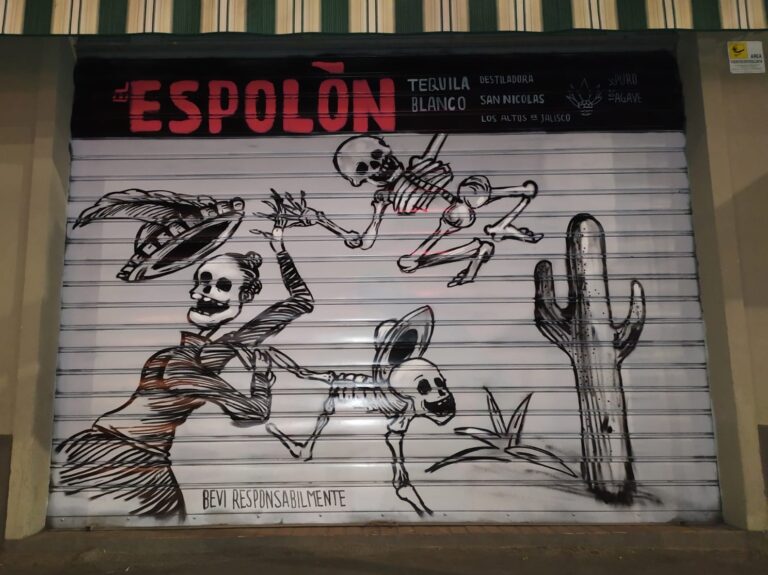 EL
ESPOLÒN
TEQUILA
BLANCO
DESTILADORA
SAN NICOLAS
LOS ALTOS DE JALISCO
PURO
AGAVE
BEVI RESPONSABILMENTE
AREA